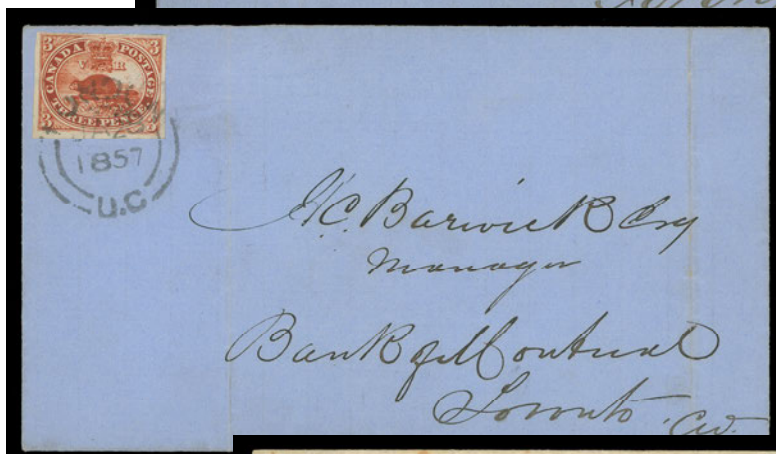 3 CANADA POSTAGE 3
V R
3 THREE PENCE 3
1857
U.C
J.C. Barwick Esq
Manager
Bank of Montreal
Toronto. CW.